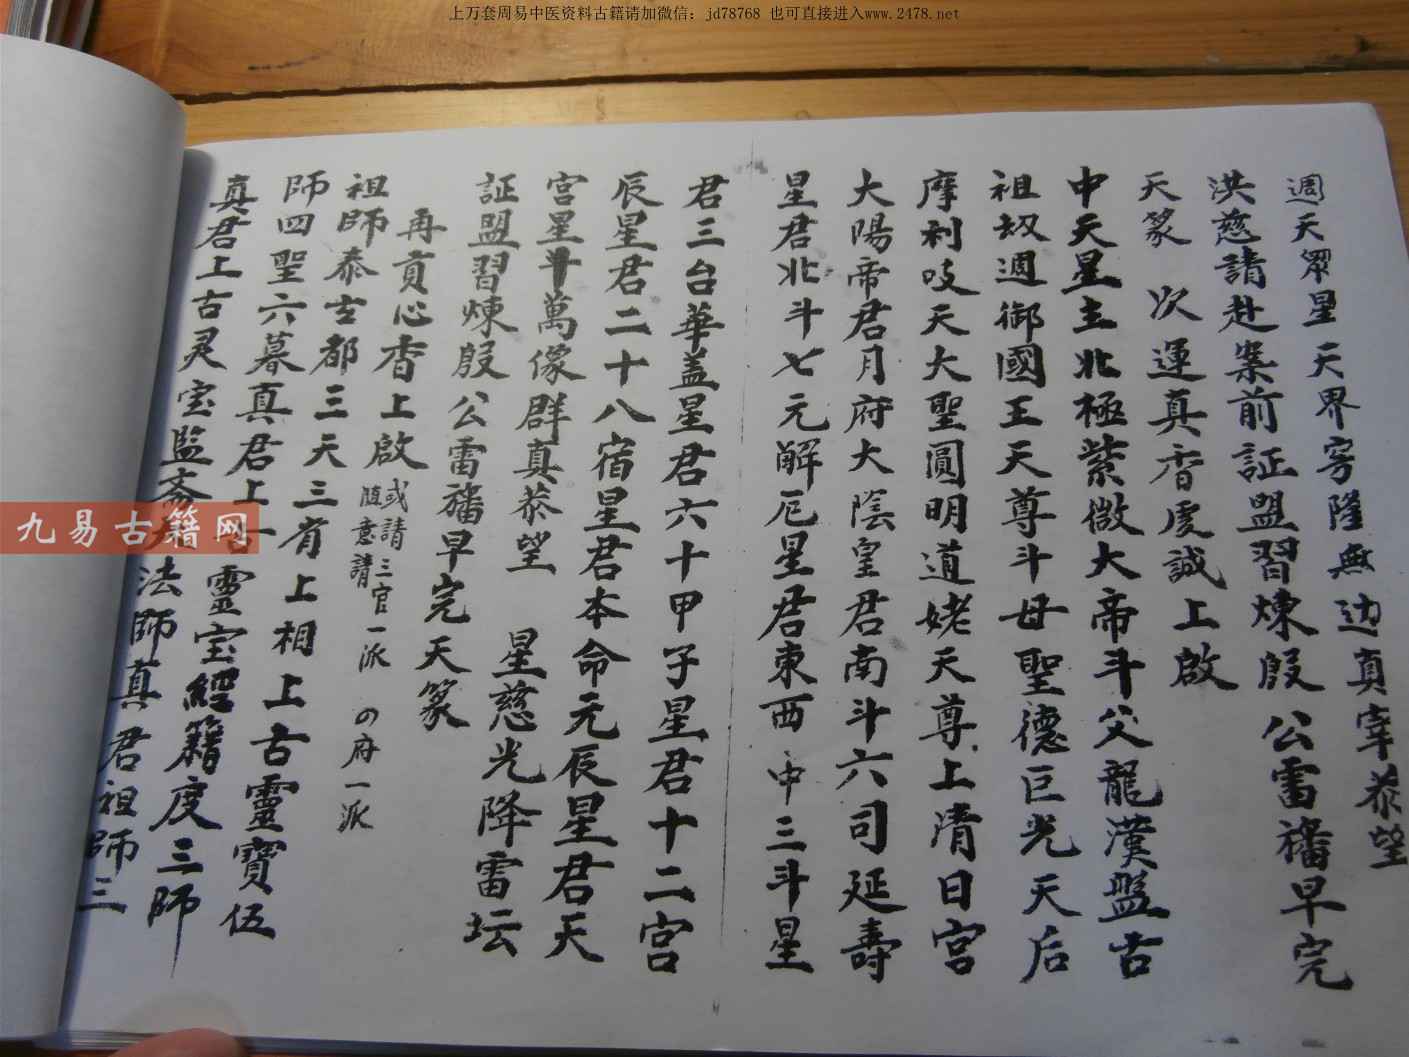 上万套周易中医资料古籍请加微信：jd78768 也可直接进入www.2478.net
週天眾星天界穹隆無边真宰恭望
洪慈請赴案前証盟習煉殷公雷旛早完
天篆 次運真香虔誠上啟
中天星主北極紫微大帝斗父龍漢盤古
祖劫週御國王天尊斗母聖德巨光天后
摩利吱天大聖圓明道姥天尊上清日宮
大陽帝君月府大陰皇君南斗六司延壽
星君北斗七元解厄星君東西中三斗星
君三台華盖星君六十甲子星君十二宮
辰星君二十八宿星君本命元辰星君天
宮星斗萬像群真恭望 星慈光降雷坛
証盟習煉殷公雷旛早完天篆
再貢心香上啟 或請三官一派 の府一派
隨意請
祖師泰玄都三天三省上相上古靈寶伍
師四聖六暮真君上古靈宝經籍度三師
真君上古灵宝监斎法師真君祖師三
九易古籍网